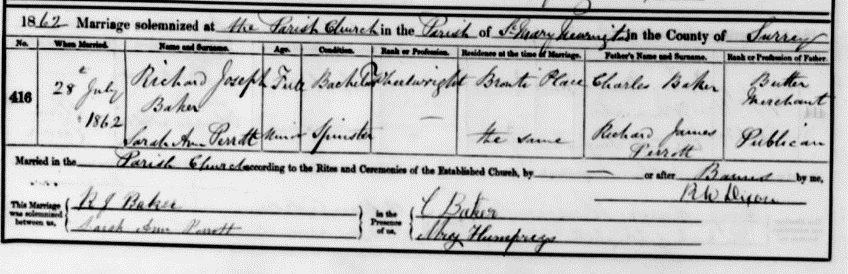 1862 Marriage solemnized at the Parish Church in the Parish of St Mary Newington in the County of Surrey
No. When Married. Name and Surname. Age. Condition. Rank or Profession. Residence at the time of Marriage. Father's Name and Surname. Rank or Profession of Father.
416 28th July 1862 Richard Joseph Baker Full Bachelor Wheelwright Bronti Place Charles Baker Butter Merchant
Sarah Ann Perrott Minor Spinster — the same Richard James Perrott Publican
Married in the Parish Church according to the Rites and Ceremonies of the Established Church, by — or after Banns by me,
R W Dixon
This Marriage was solemnized between us, R J Baker
Sarah Ann Perrott
In the Presence of us, C Baker
Humphreys